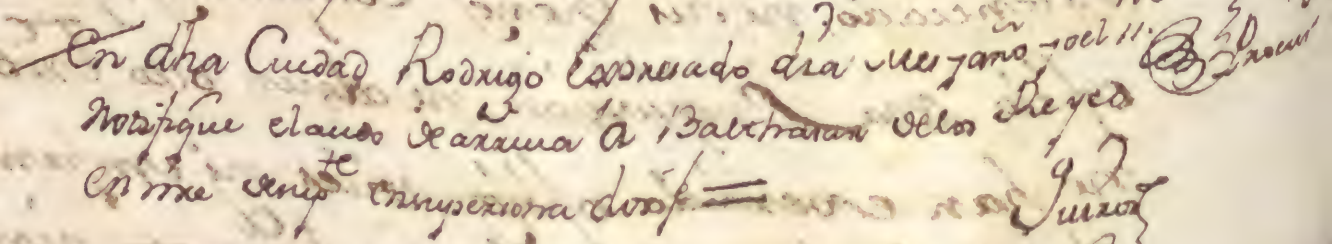 En dha Ciudad Rodrigo expresado dia mes y año yo el
Notifique el auto de arriua a Balthasar de los Reyes
en nre de su pte en su persona doi fe =
Quiros